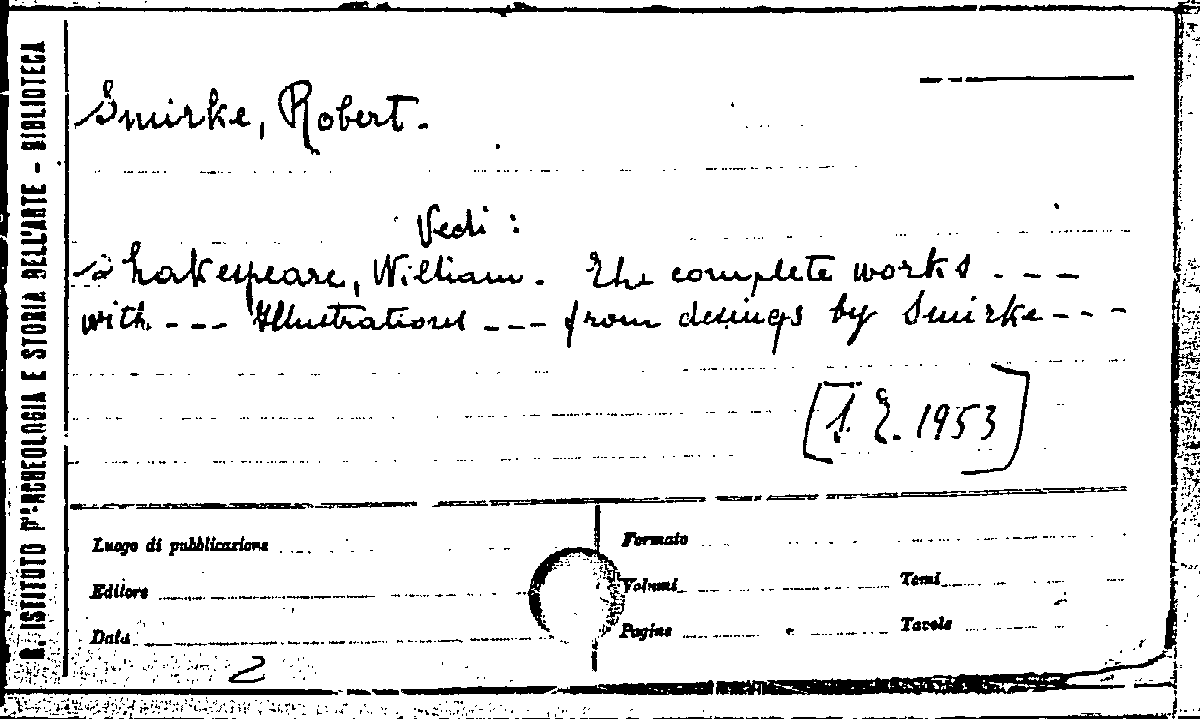 R. ISTITUTO D'ARCHEOLOGIA E STORIA DELL'ARTE - BIBLIOTECA
Smirke, Robert.
Vedi :
Shakespeare, William. The complete works - - -
with - - - Illustrations - - - from desings by Smirke - - -
[S. E. 1953]
Luogo di pubblicazione
Formato
Editore
Volumi
Tomi
Data
Pagine
Tavole
2